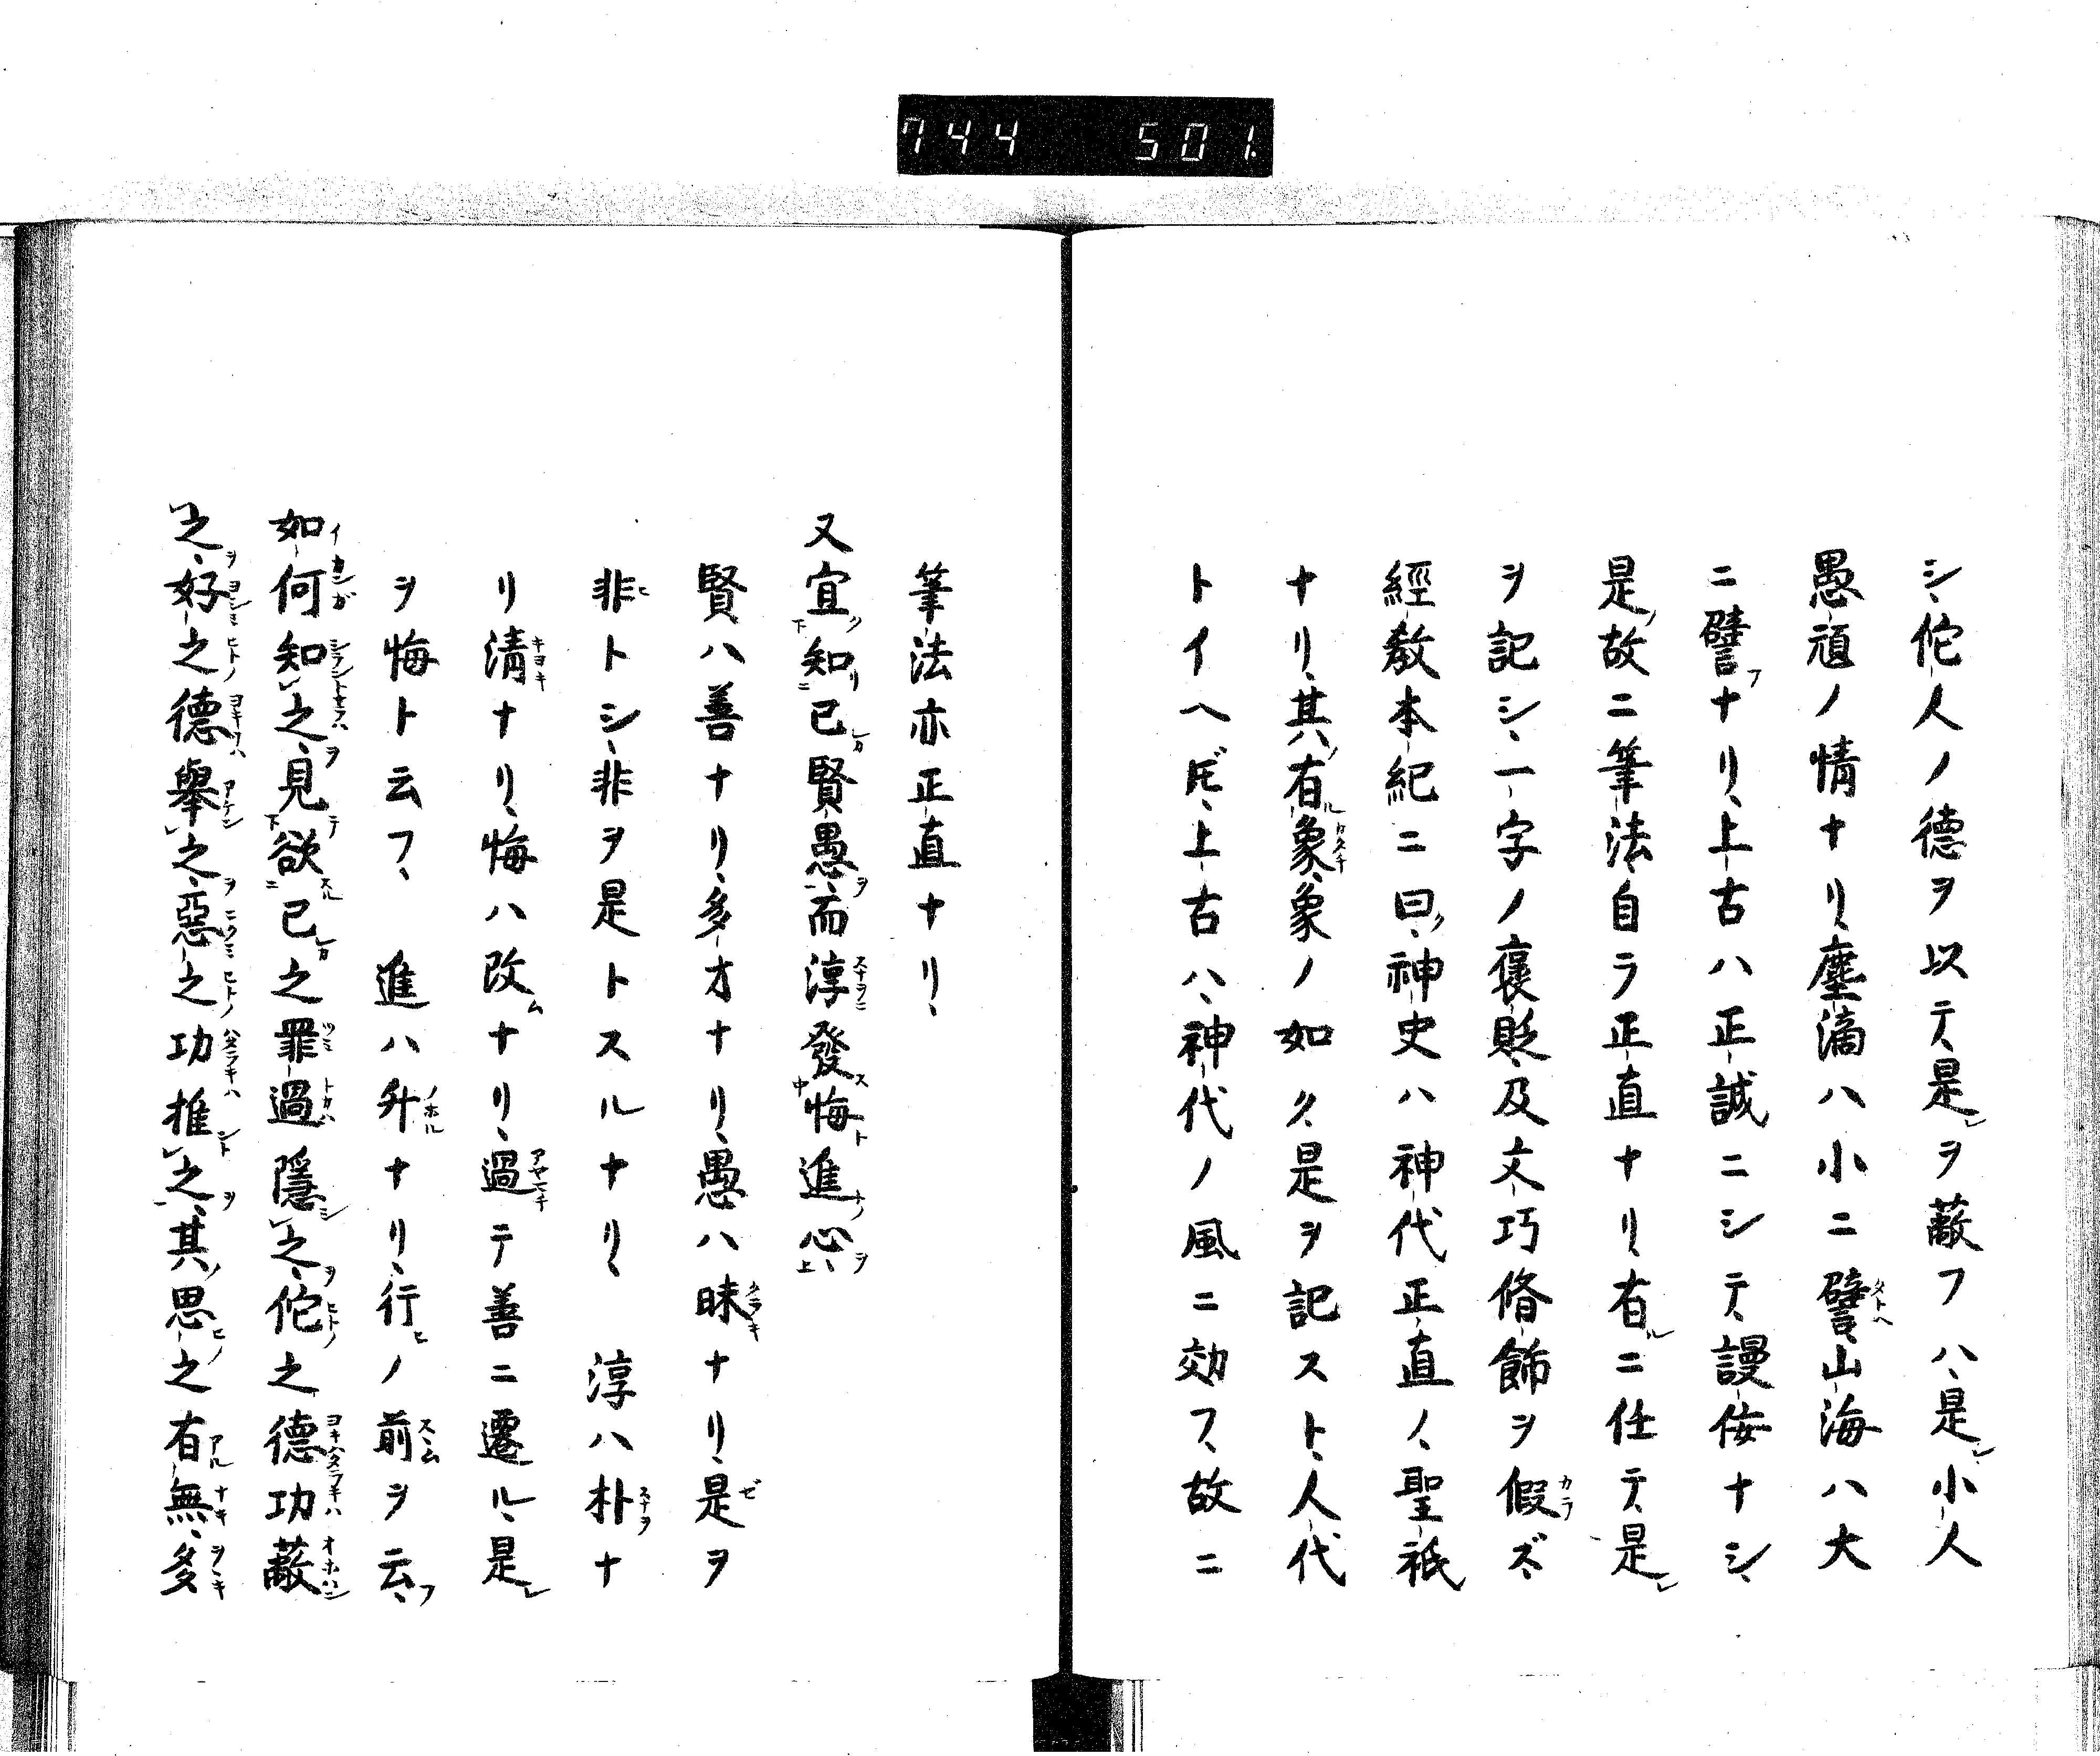 744 501
シ、佗人ノ德ヲ以テ、是レヲ蔽フハ、是レ小人
愚頑ノ情ナリ、塵滴ハ小ニ譬ヘ、山海ハ大
ニ譬フナリ、上古ハ正誠ニシテ、謾侫ナシ、
是ノ故ニ筆法自ラ正直ナリ、有ルニ任テ、是レ
ヲ記シ、一字ノ褒貶、及文巧脩飾ヲ假ズ、
經教本紀ニ曰ク、神史ハ神代正直ノ、聖祇
ナリ、其ハ有ル象、象ノ如ク、是ヲ記スト、人代
トイヘ𪜈、上古ハ、神代ノ風ニ効フ、故ニ
筆法亦正直ナリ、
又宜知己賢愚、而淳發悔進心、
賢ハ善ナリ、多才ナリ、愚ハ昧ナリ、是ヲ
非トシ、非ヲ是トスルナリ、淳ハ朴ナ
リ清ナリ、悔ハ改ムナリ、過テ善ニ遷ル、是レ
ヲ悔ト云フ、進ハ升ナリ、行ヒノ前ヲ云フ、
如何知之、見欲己之罪過隱之、佗之德功蔽
之、好之德舉之、惡之功推之、其思之有無、多